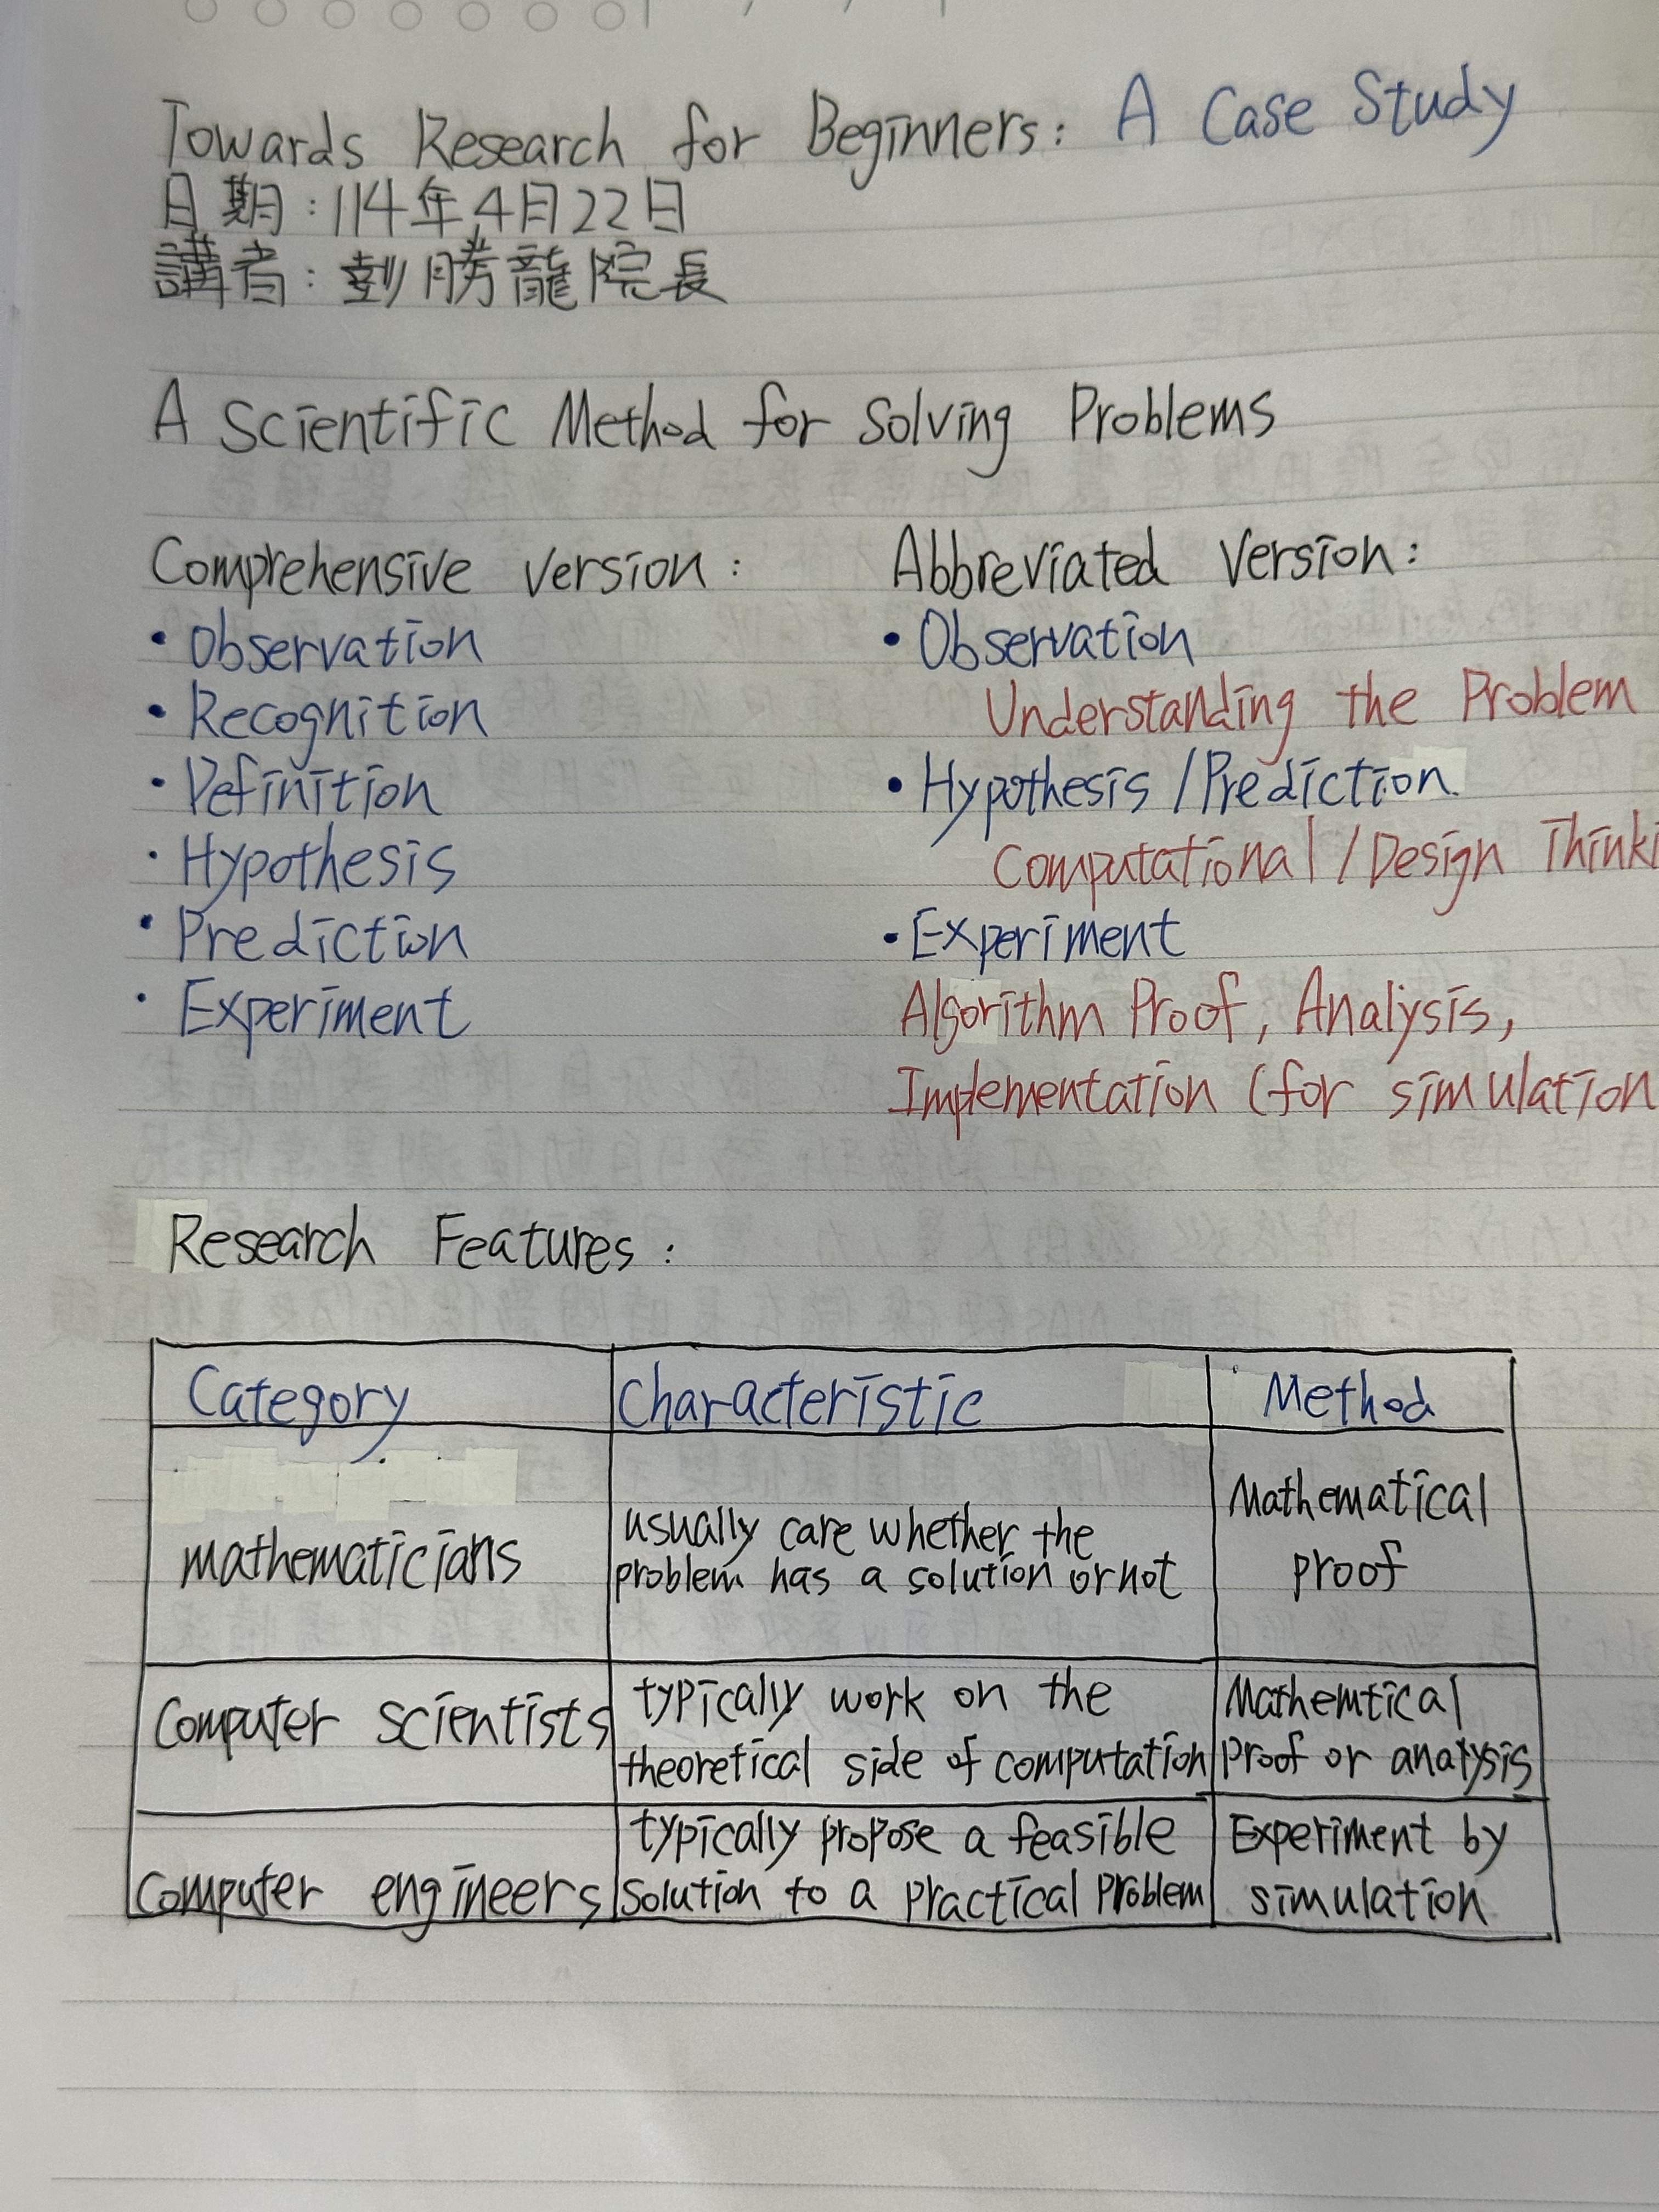 Towards Research for Beginners: A Case Study
日期:114年4月22日
講者:彭勝龍院長
A Scientific Method for Solving Problems
Comprehensive version:
• Observation
• Recognition
• Definition
• Hypothesis
• Prediction
• Experiment
Abbreviated Version:
• Observation
Understanding the Problem
• Hypothesis / Prediction
Computational / Design Thinki
• Experiment
Algorithm Proof, Analysis,
Implementation (for simulation
Research Features:
Category Characteristic Method
mathematicians
usually care whether the
problem has a solution or not
Mathematical
proof
Computer scientists
typically work on the
theoretical side of computation
Mathemtical
Proof or analysis
Computer engineers
typically propose a feasible
solution to a practical problem
Experiment by
simulation